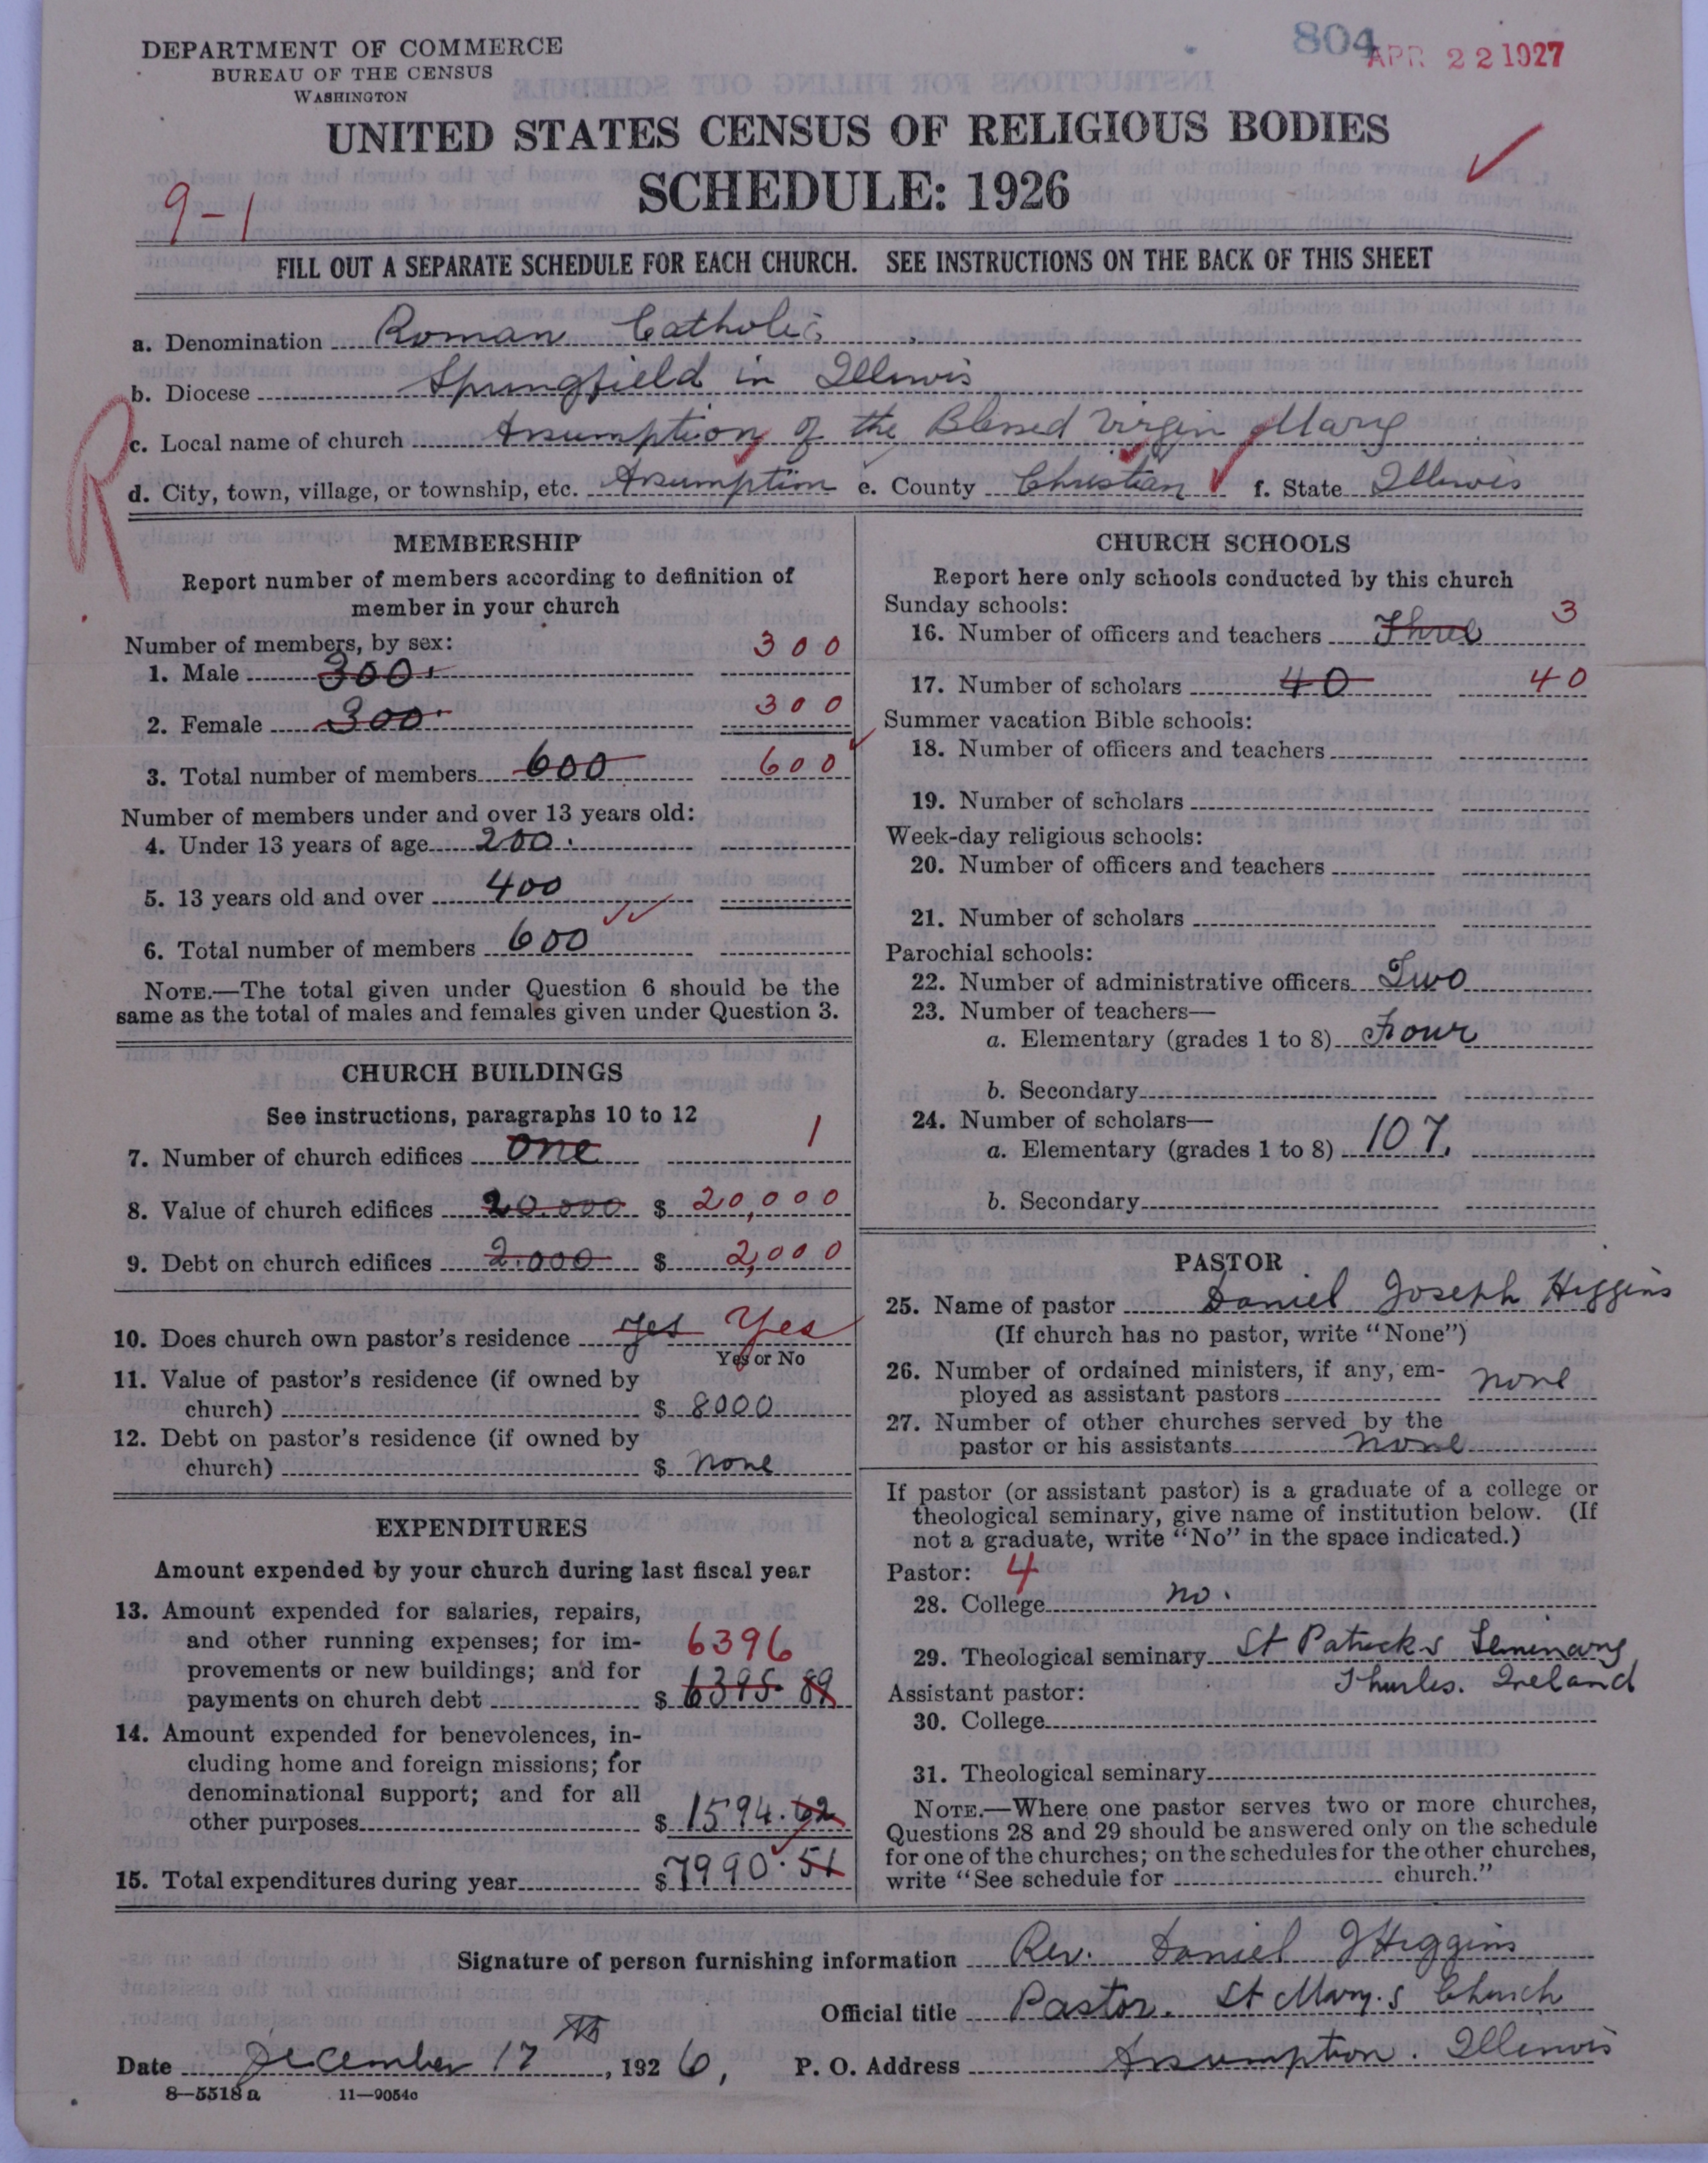 DEPARTMENT OF COMMERCE
BUREAU OF THE CENSUS
WASHINGTON
804
APR 22 1927
UNITED STATES CENSUS OF RELIGIOUS BODIES
SCHEDULE: 1926
9-1
FILL OUT A SEPARATE SCHEDULE FOR EACH CHURCH. SEE INSTRUCTIONS ON THE BACK OF THIS SHEET
a. Denomination Roman Catholic
b. Diocese Springfield in Illinois
c. Local name of church Assumption of the Blessed Virgin Mary
d. City, town, village, or township, etc. Assumption e. County Christian f. State Illinois
R
MEMBERSHIP
Report number of members according to definition of
member in your church
Number of members, by sex:
1. Male 300. 300
2. Female 300. 300
3. Total number of members 600 600
Number of members under and over 13 years old:
4. Under 13 years of age 200.
5. 13 years old and over 400
6. Total number of members 600
NOTE.—The total given under Question 6 should be the
same as the total of males and females given under Question 3.
CHURCH BUILDINGS
See instructions, paragraphs 10 to 12
7. Number of church edifices one 1
8. Value of church edifices 20 000 $ 20,000
9. Debt on church edifices 2.000 $ 2,000
10. Does church own pastor's residence yes Yes
Yes or No
11. Value of pastor's residence (if owned by
church) $ 8000
12. Debt on pastor's residence (if owned by
church) $ None
EXPENDITURES
Amount expended by your church during last fiscal year
13. Amount expended for salaries, repairs,
and other running expenses; for im-
6396
provements or new buildings; and for
payments on church debt $ 6395. 89
14. Amount expended for benevolences, in-
cluding home and foreign missions; for
denominational support; and for all
other purposes $ 1594.62
15. Total expenditures during year $ 7990.51
CHURCH SCHOOLS
Report here only schools conducted by this church
Sunday schools:
16. Number of officers and teachers Three 3
17. Number of scholars 40 40
Summer vacation Bible schools:
18. Number of officers and teachers
19. Number of scholars
Week-day religious schools:
20. Number of officers and teachers
21. Number of scholars
Parochial schools:
22. Number of administrative officers Two
23. Number of teachers—
a. Elementary (grades 1 to 8) Four
b. Secondary
24. Number of scholars—
a. Elementary (grades 1 to 8) 107.
b. Secondary
PASTOR
25. Name of pastor Daniel Joseph Higgins
(If church has no pastor, write "None")
26. Number of ordained ministers, if any, em-
ployed as assistant pastors none
27. Number of other churches served by the
pastor or his assistants none
If pastor (or assistant pastor) is a graduate of a college or
theological seminary, give name of institution below. (If
not a graduate, write "No" in the space indicated.)
Pastor: 4
28. College no.
29. Theological seminary St Patrick's Seminary
Thurles. Ireland
Assistant pastor:
30. College
31. Theological seminary
NOTE.—Where one pastor serves two or more churches,
Questions 28 and 29 should be answered only on the schedule
for one of the churches; on the schedules for the other churches,
write "See schedule for church."
Signature of person furnishing information Rev. Daniel J Higgins
Official title Pastor. St Mary's Church
Date December 17th, 1926, P. O. Address Assumption. Illinois
8—5518 a 11—9054c